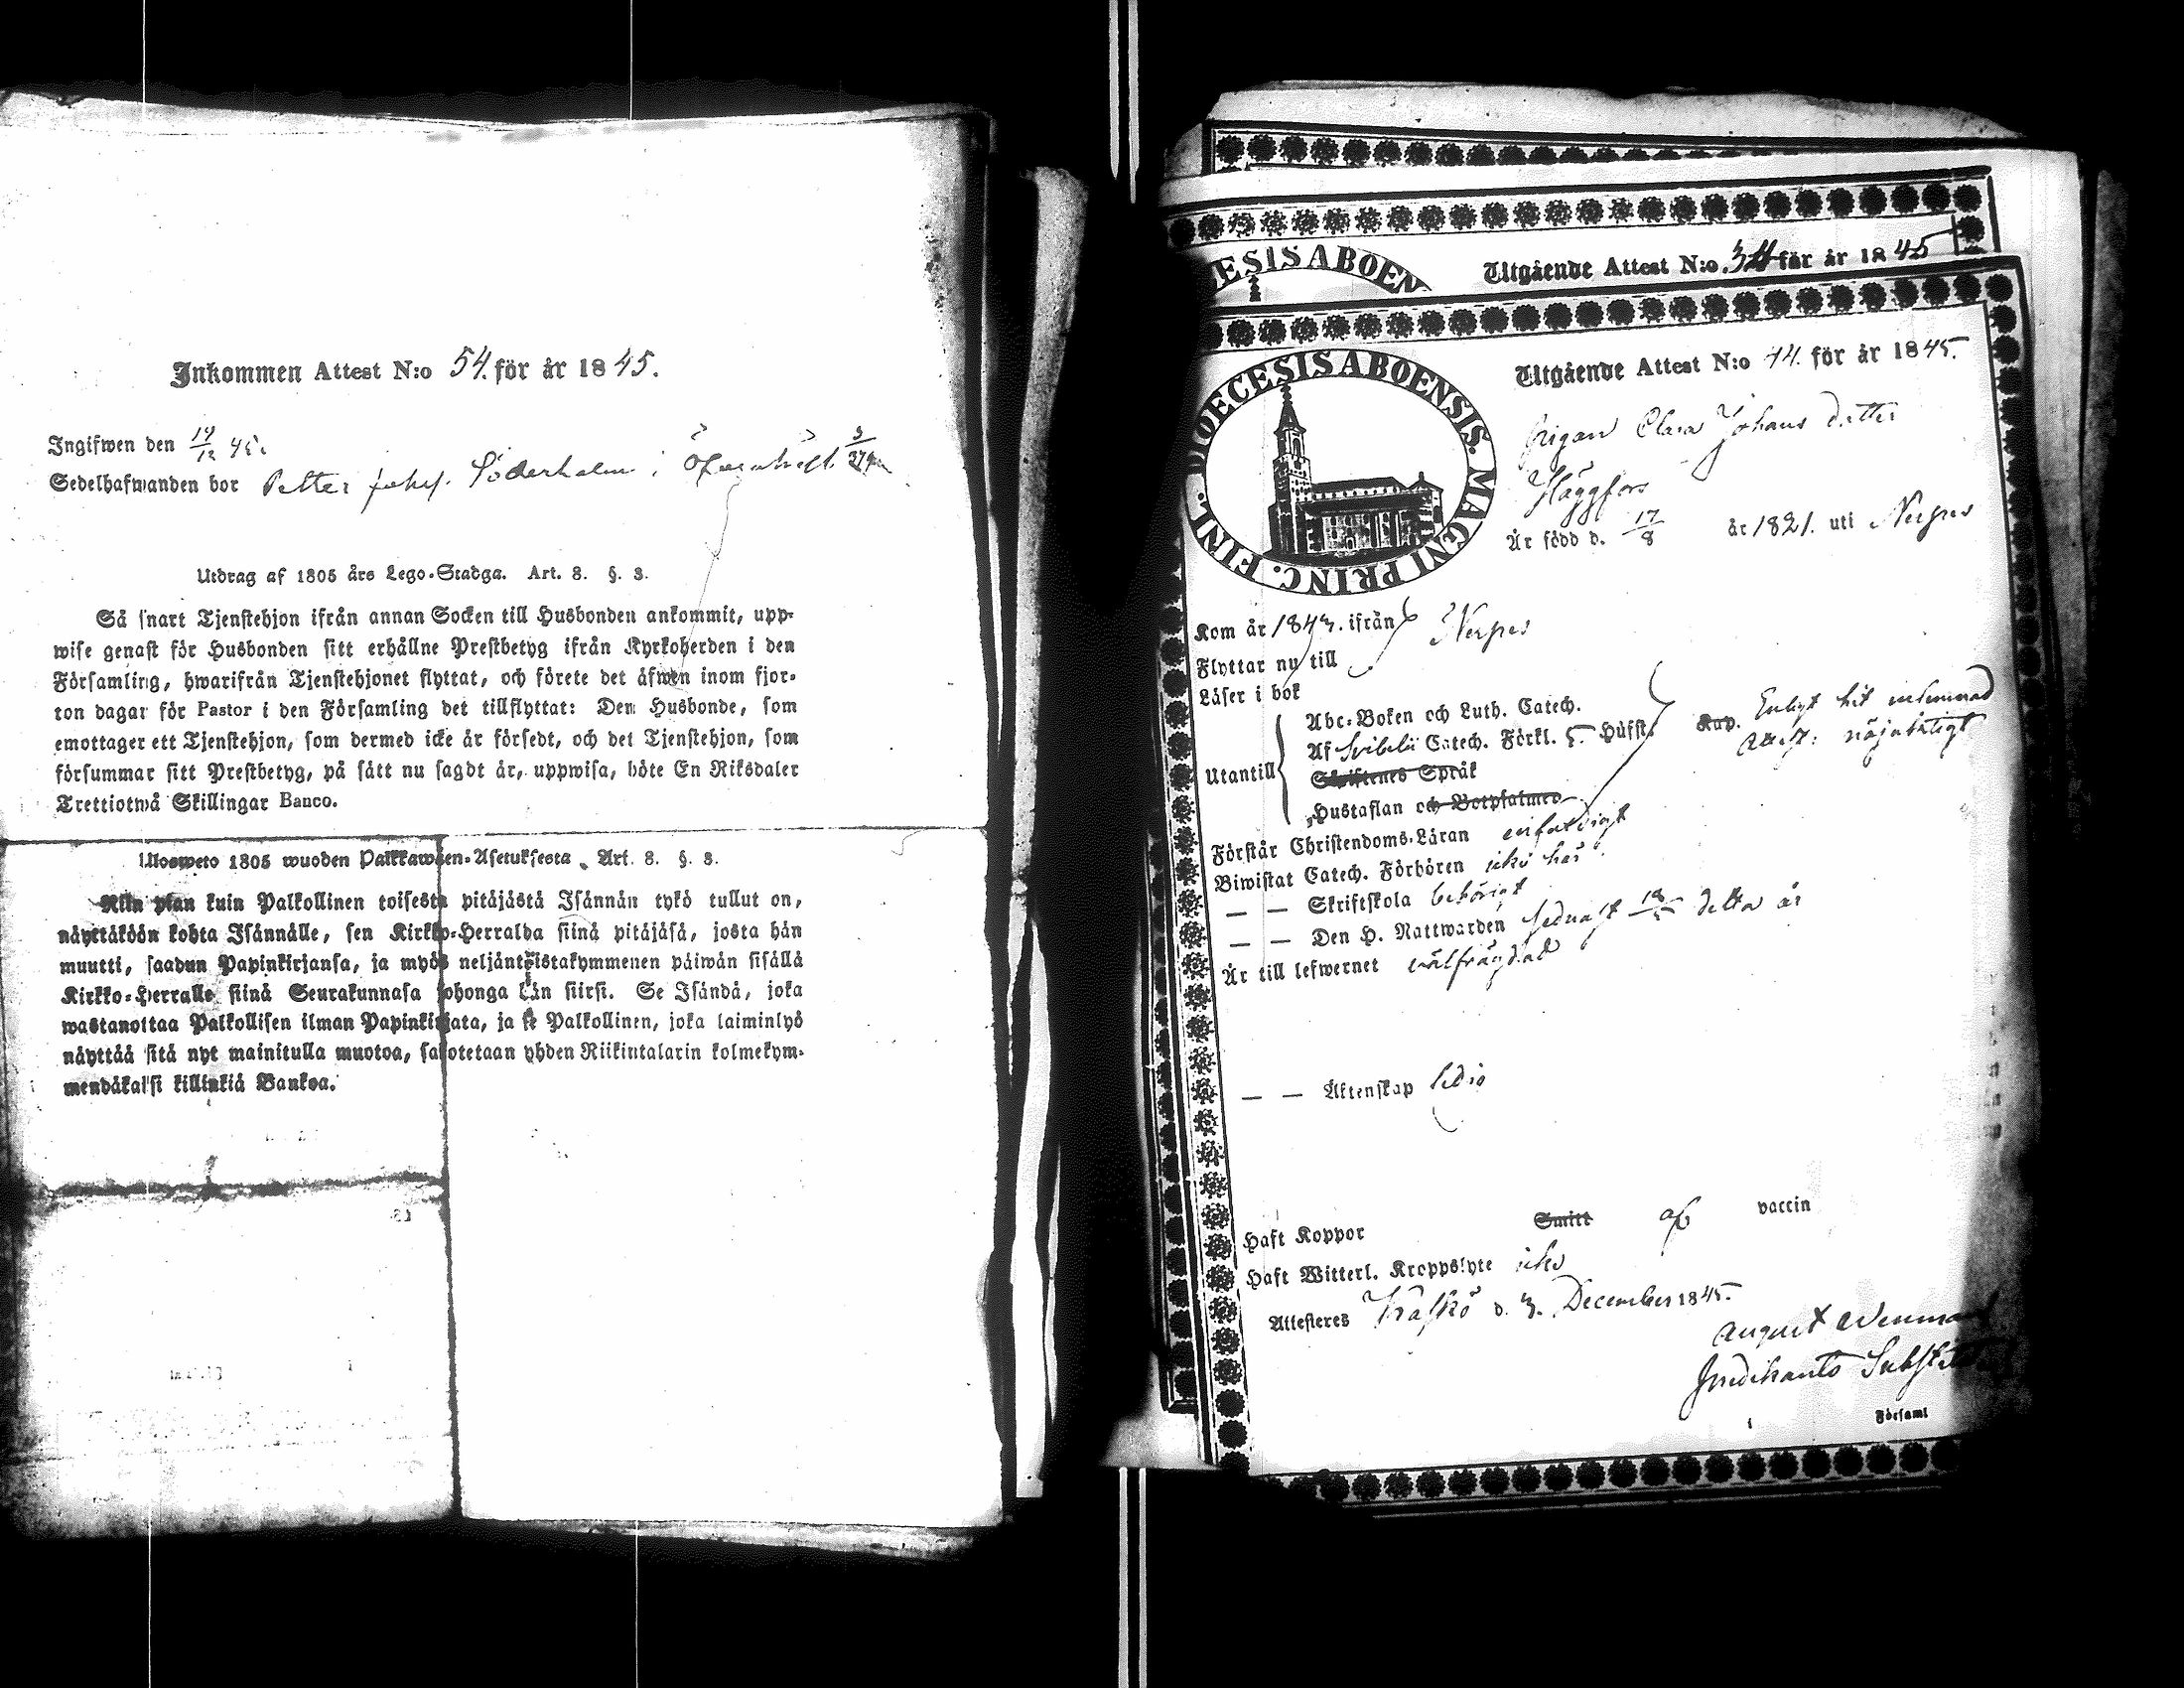 Inkommen Attest N:o 54. för år 1845.
Ingifwen den 14/12 45.
Sedelhafwanden bor Petter Söderholm i
Utdrag af 1805 års Lego-Stadga. Art. 8. §. 3.
Så snart Tjenstehjon ifrån annan Socken till Husbonden ankommit, upp-
wise genast för Husbonden sitt erhållne Prestbetyg ifrån Kyrkoherden i den
Församling, hwarifrån Tjenstehjonet flyttat, och förete det äfwen inom fjor-
ton dagar för Pastor i den Församling det tillflyttat: Den Husbonde, som
emottager ett Tjenstehjon, som dermed icke är försedt, och det Tjenstehjon, som
försummar sitt Prestbetyg, på sätt nu sagdt är, uppwisa, böte En Riksdaler
Trettiotwå Skillingar Banco.
Ulosweto 1805 wuoden Palkkawäen-Asetuksesta. Art. 8. §. 3.
Niin pian kuin Palkollinen toisesta pitäjästä Isännän tykö tullut on,
näyttäköön kohta Isännälle, sen Kirkko-Herralda siinä pitäjäsä, josta hän
muutti, saadun Papinkirjansa, ja myös neljäntöistakymmenen päiwän sisällä
Kirkko-Herralle siinä Seurakunnasa johonga hän siirsi. Se Isändä, joka
wastanottaa Palkollisen ilman Papinkirjata, ja se Palkollinen, joka laiminlyö
näyttää sitä nyt mainitulla muotoa, sakotetaan yhden Riikintalarin kolmekym-
mendäkaksi killinkiä Bankoa.
Utgående Attest N:o 34 för år 1845
DIOECESIS ABOENSIS. MAGNI PRINC. FINL.
Utgående Attest N:o 44. för år 1845.
Pigan Clara Johans dotter
Häggfors
Är född d. 17/8 år 1821. uti Nerpes
Kom år 1843. ifrån
Flyttar nu till
Nerpes
Läser i bok
Utantill
Abc-Boken och Luth. Catech.
Af Svibelii Catech. Förkl. Hufst.
Skriftenes Språk
Hustaflan och Botpsalmer
Enligt hit inlemnad
Attest: nöjaktigt
Förstår Christendoms-Läran enfaldigt
Biwistat Catech. Förhören icke här
— — Skriftskola behörigt
— — Den H. Nattwarden sednast detta år
Är till lefwernet wälfrägdad
— — Äktenskap ledig
Haft Koppor Smitt af vaccin
Haft Witterl. Kroppslyte icke
Attesteres Kaskö d. 3. December 1845.
August
Predikants Substitut
Församl